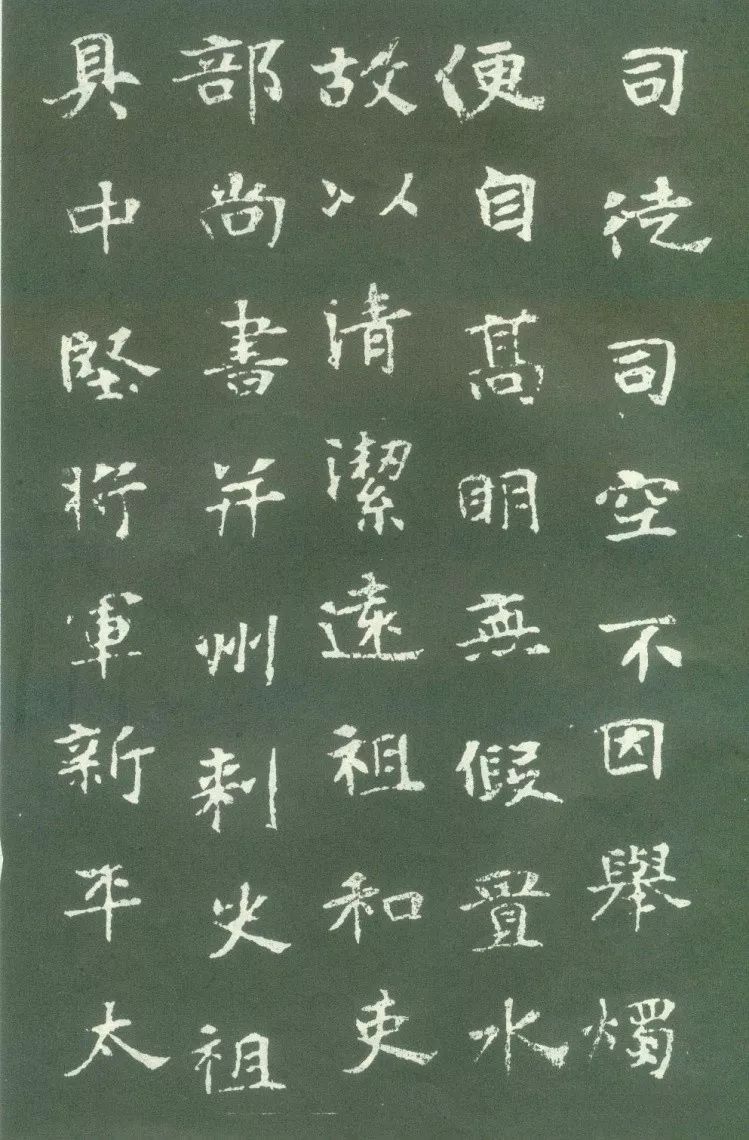 司徒司空不因舉燭
便自髙明無假置水
故以清潔遠祖和吏
部尚書并州刺史祖
具中堅將軍新平太